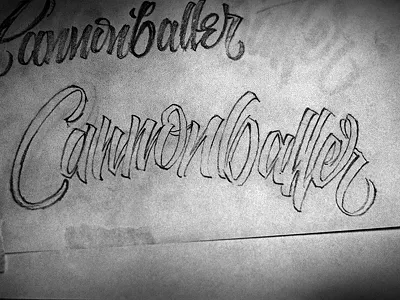 Cannonballer
Cannonballer